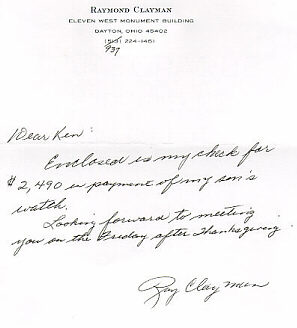 RAYMOND CLAYMAN
ELEVEN WEST MONUMENT BUILDING
DAYTON, OHIO 45402
(513) 224-1461
937
Dear Ken:
Enclosed is my check for
$2,490 in payment of my son's
watch.
Looking forward to meeting
you on the Friday after Thanksgiving.
Ray Clayman